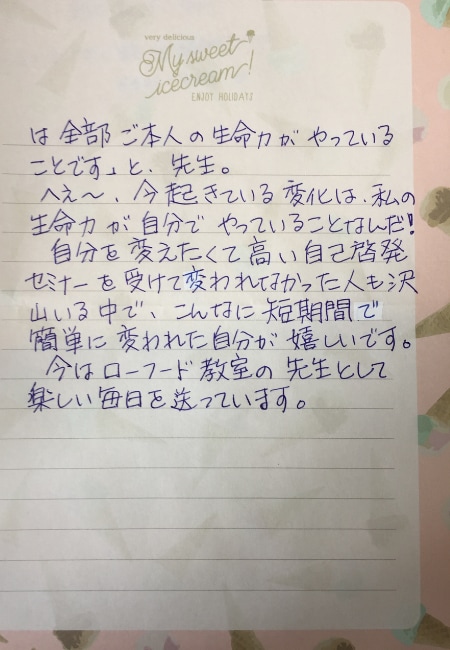 very delicious
My sweet
icecream!
ENJOY HOLIDAYS
は全部ご本人の生命力がやっている
ことです」と、先生。
へぇ〜、今起きている変化は、私の
生命力が自分でやっていることなんだ!
自分を変えたくて高い自己啓発
セミナーを受けて変われなかった人も沢
山いる中で、こんなに短期間で
簡単に変われた自分が嬉しいです。
今はローフード教室の先生として
楽しい毎日を送っています。